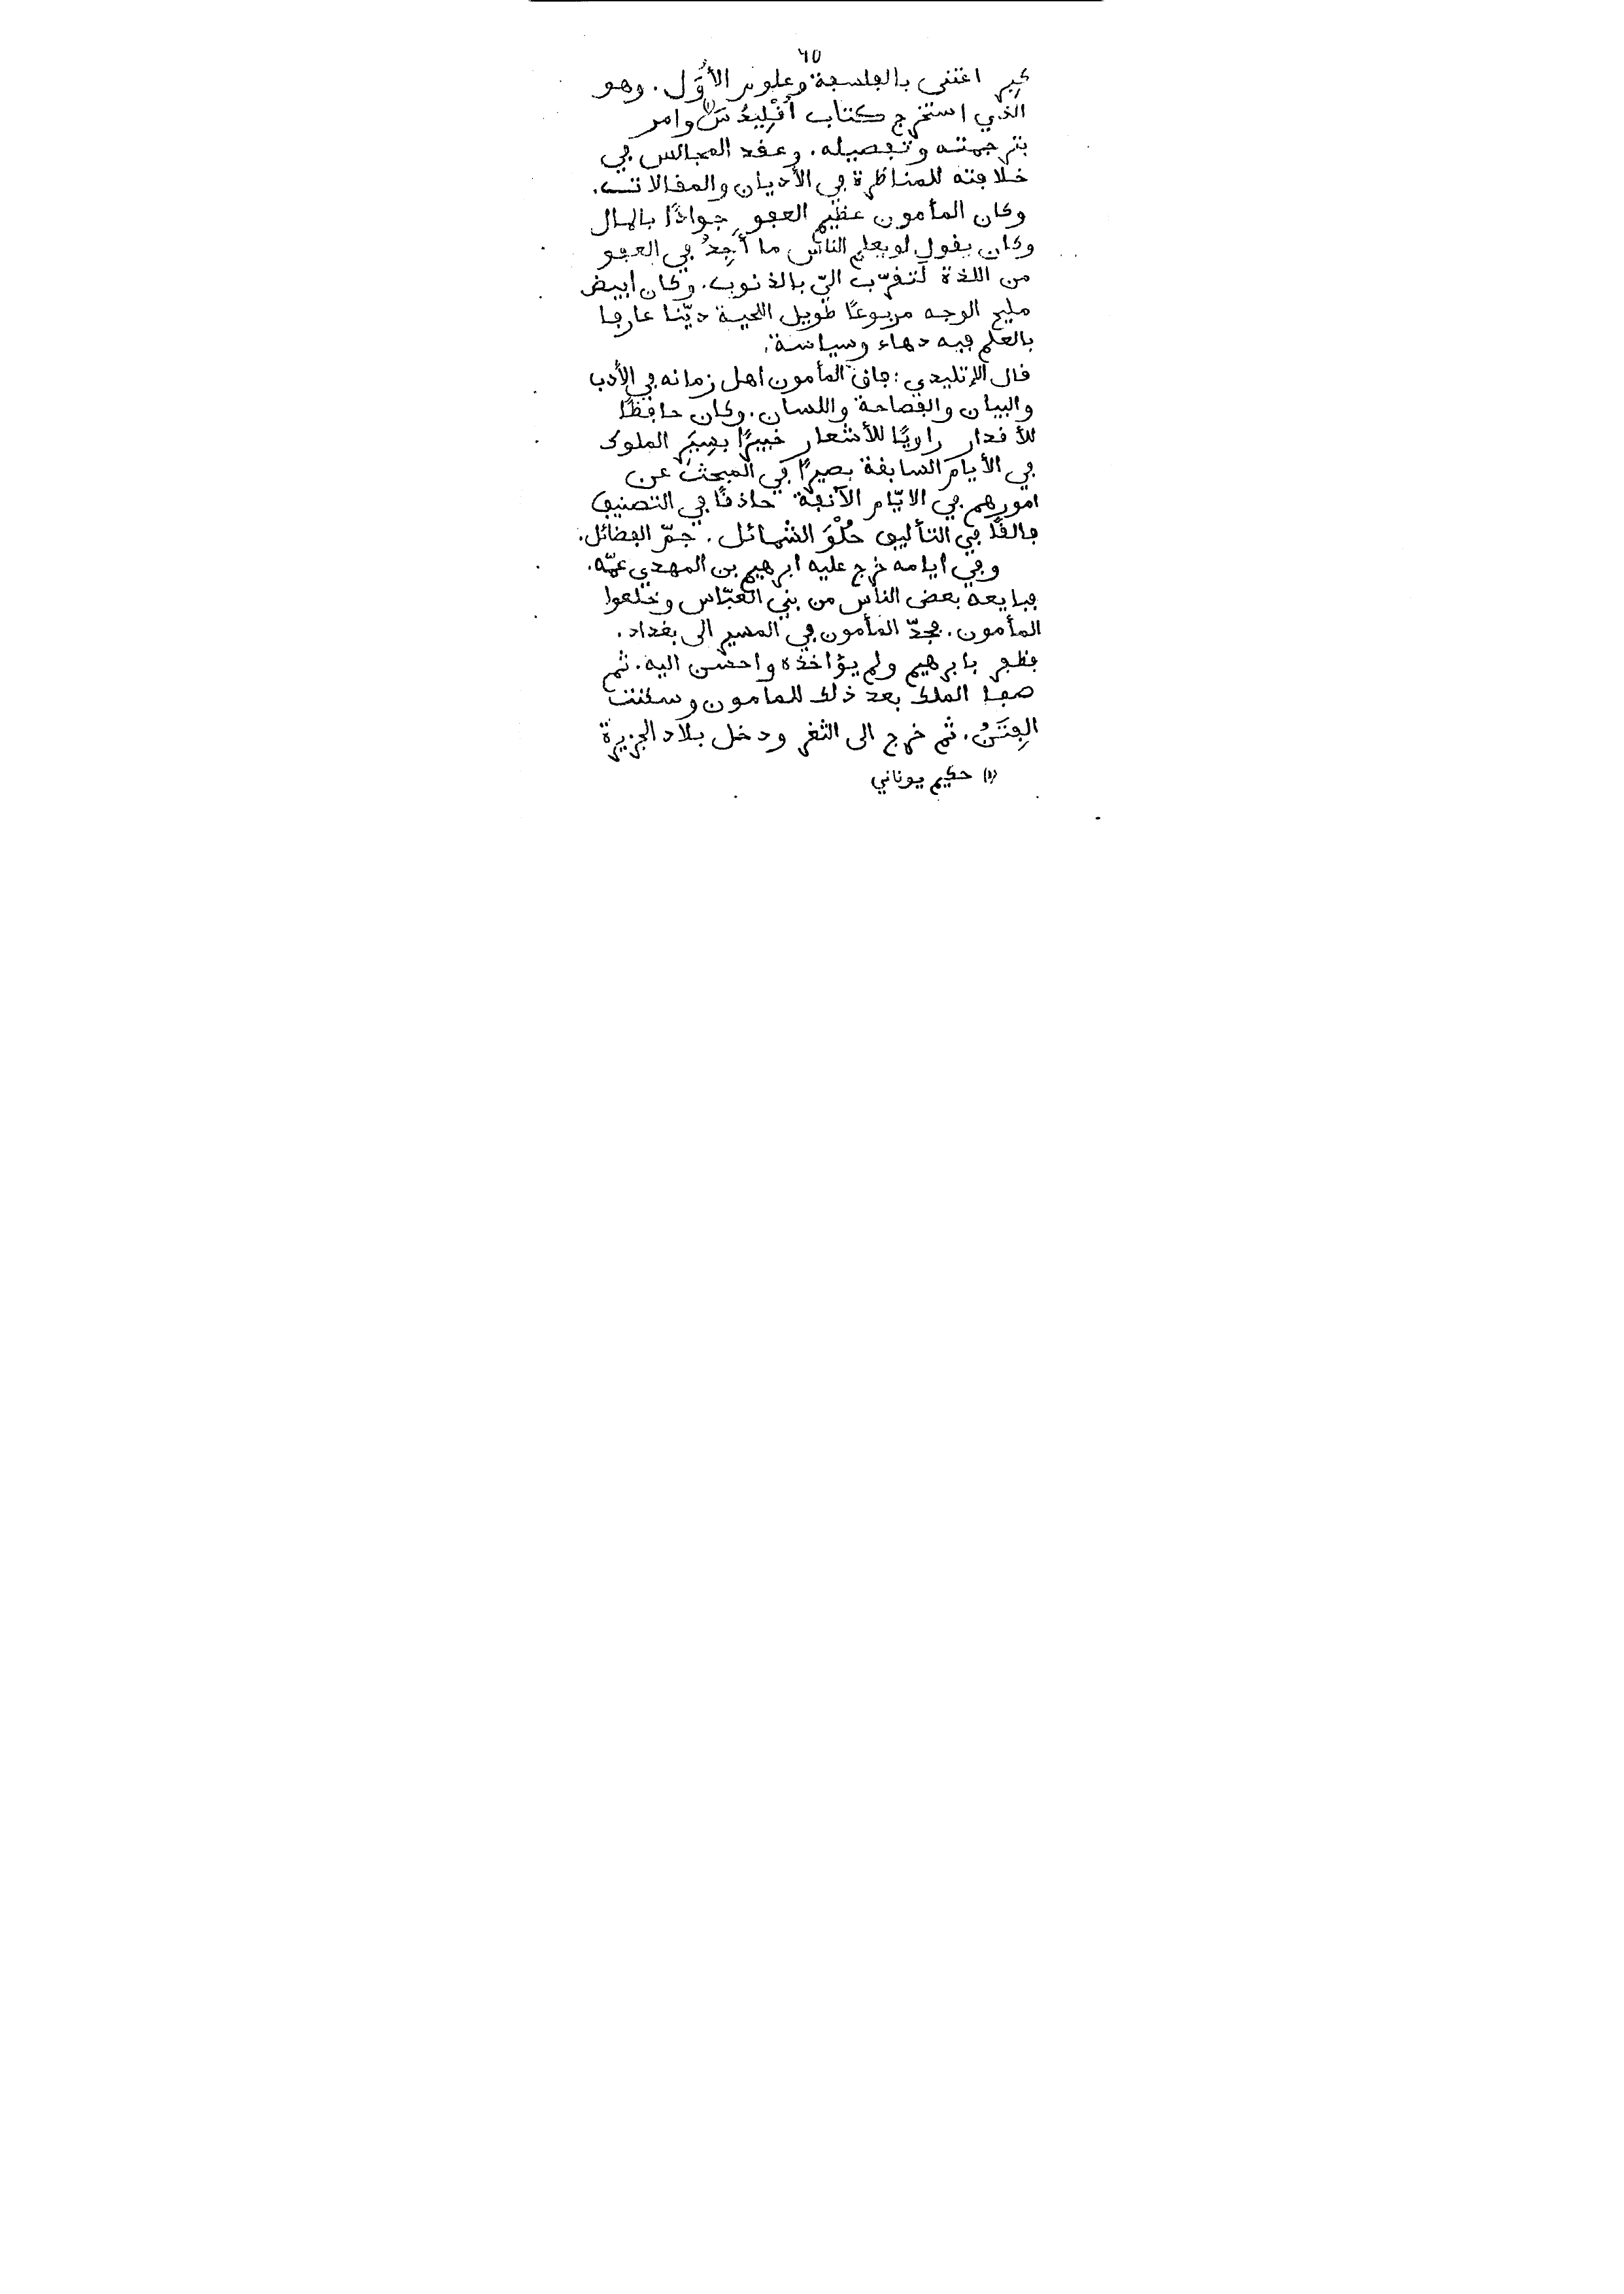 ٦٥
كبير اعتنى بالفلسفة وعلوم الأُوَل. وهو
الذي استخرج كتاب أُقْلِيدُسَ(١) وامر
بترجمته وتفصيله. وعقد المجالس في
خلافته للمناظرة في الأديان والمقالات.
وكان المأمون عظيم العفو جوادًا بالمال
وكان يقول لو يعلم الناس ما أَجِدُ في العفو
من اللذة لتقرّب اليّ بالذنوب. وكان ابيض
مليح الوجه مربوعًا طويل اللحية ديّنا عارفا
بالعلم فيه دهاء وسياسة.
قال الإتليدي: فاق المأمون اهل زمانه في الأدب
والبيان والفصاحة واللسان. وكان حافظًا
للأقدار راويًا للأشعار خبيرًا بسِيَرِ الملوك
في الأيام السابقة بصيرًا في المبحث عن
امورهم في الايّام الآنفة حاذقًا في التصنيف
فالقًا في التأليف حُلْوَ الشمائل. جمّ الفضائل.
وفي ايامه خرج عليه ابرهيم بن المهدي عمّه.
فبايعه بعض الناس من بني العبّاس وخلعوا
المأمون. فجدّ المأمون في المسير الى بغداد.
فظفر بابرهيم ولم يؤاخذه واحسن اليه. ثم
صفا الملك بعد ذلك للمامون وسكنت
الفِتَنُ. ثم خرج الى الثغر ودخل بلاد الجزيرة
(١) حكيم يوناني